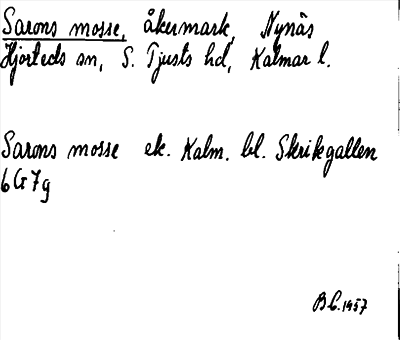 Sarons mosse, åkermark, Nynäs
Hjorteds sn, S. Tjusts hd, Kalmar l.
Sarons mosse ek. Kalm. bl. Skrikegallen
6G7g
B.C. 1957